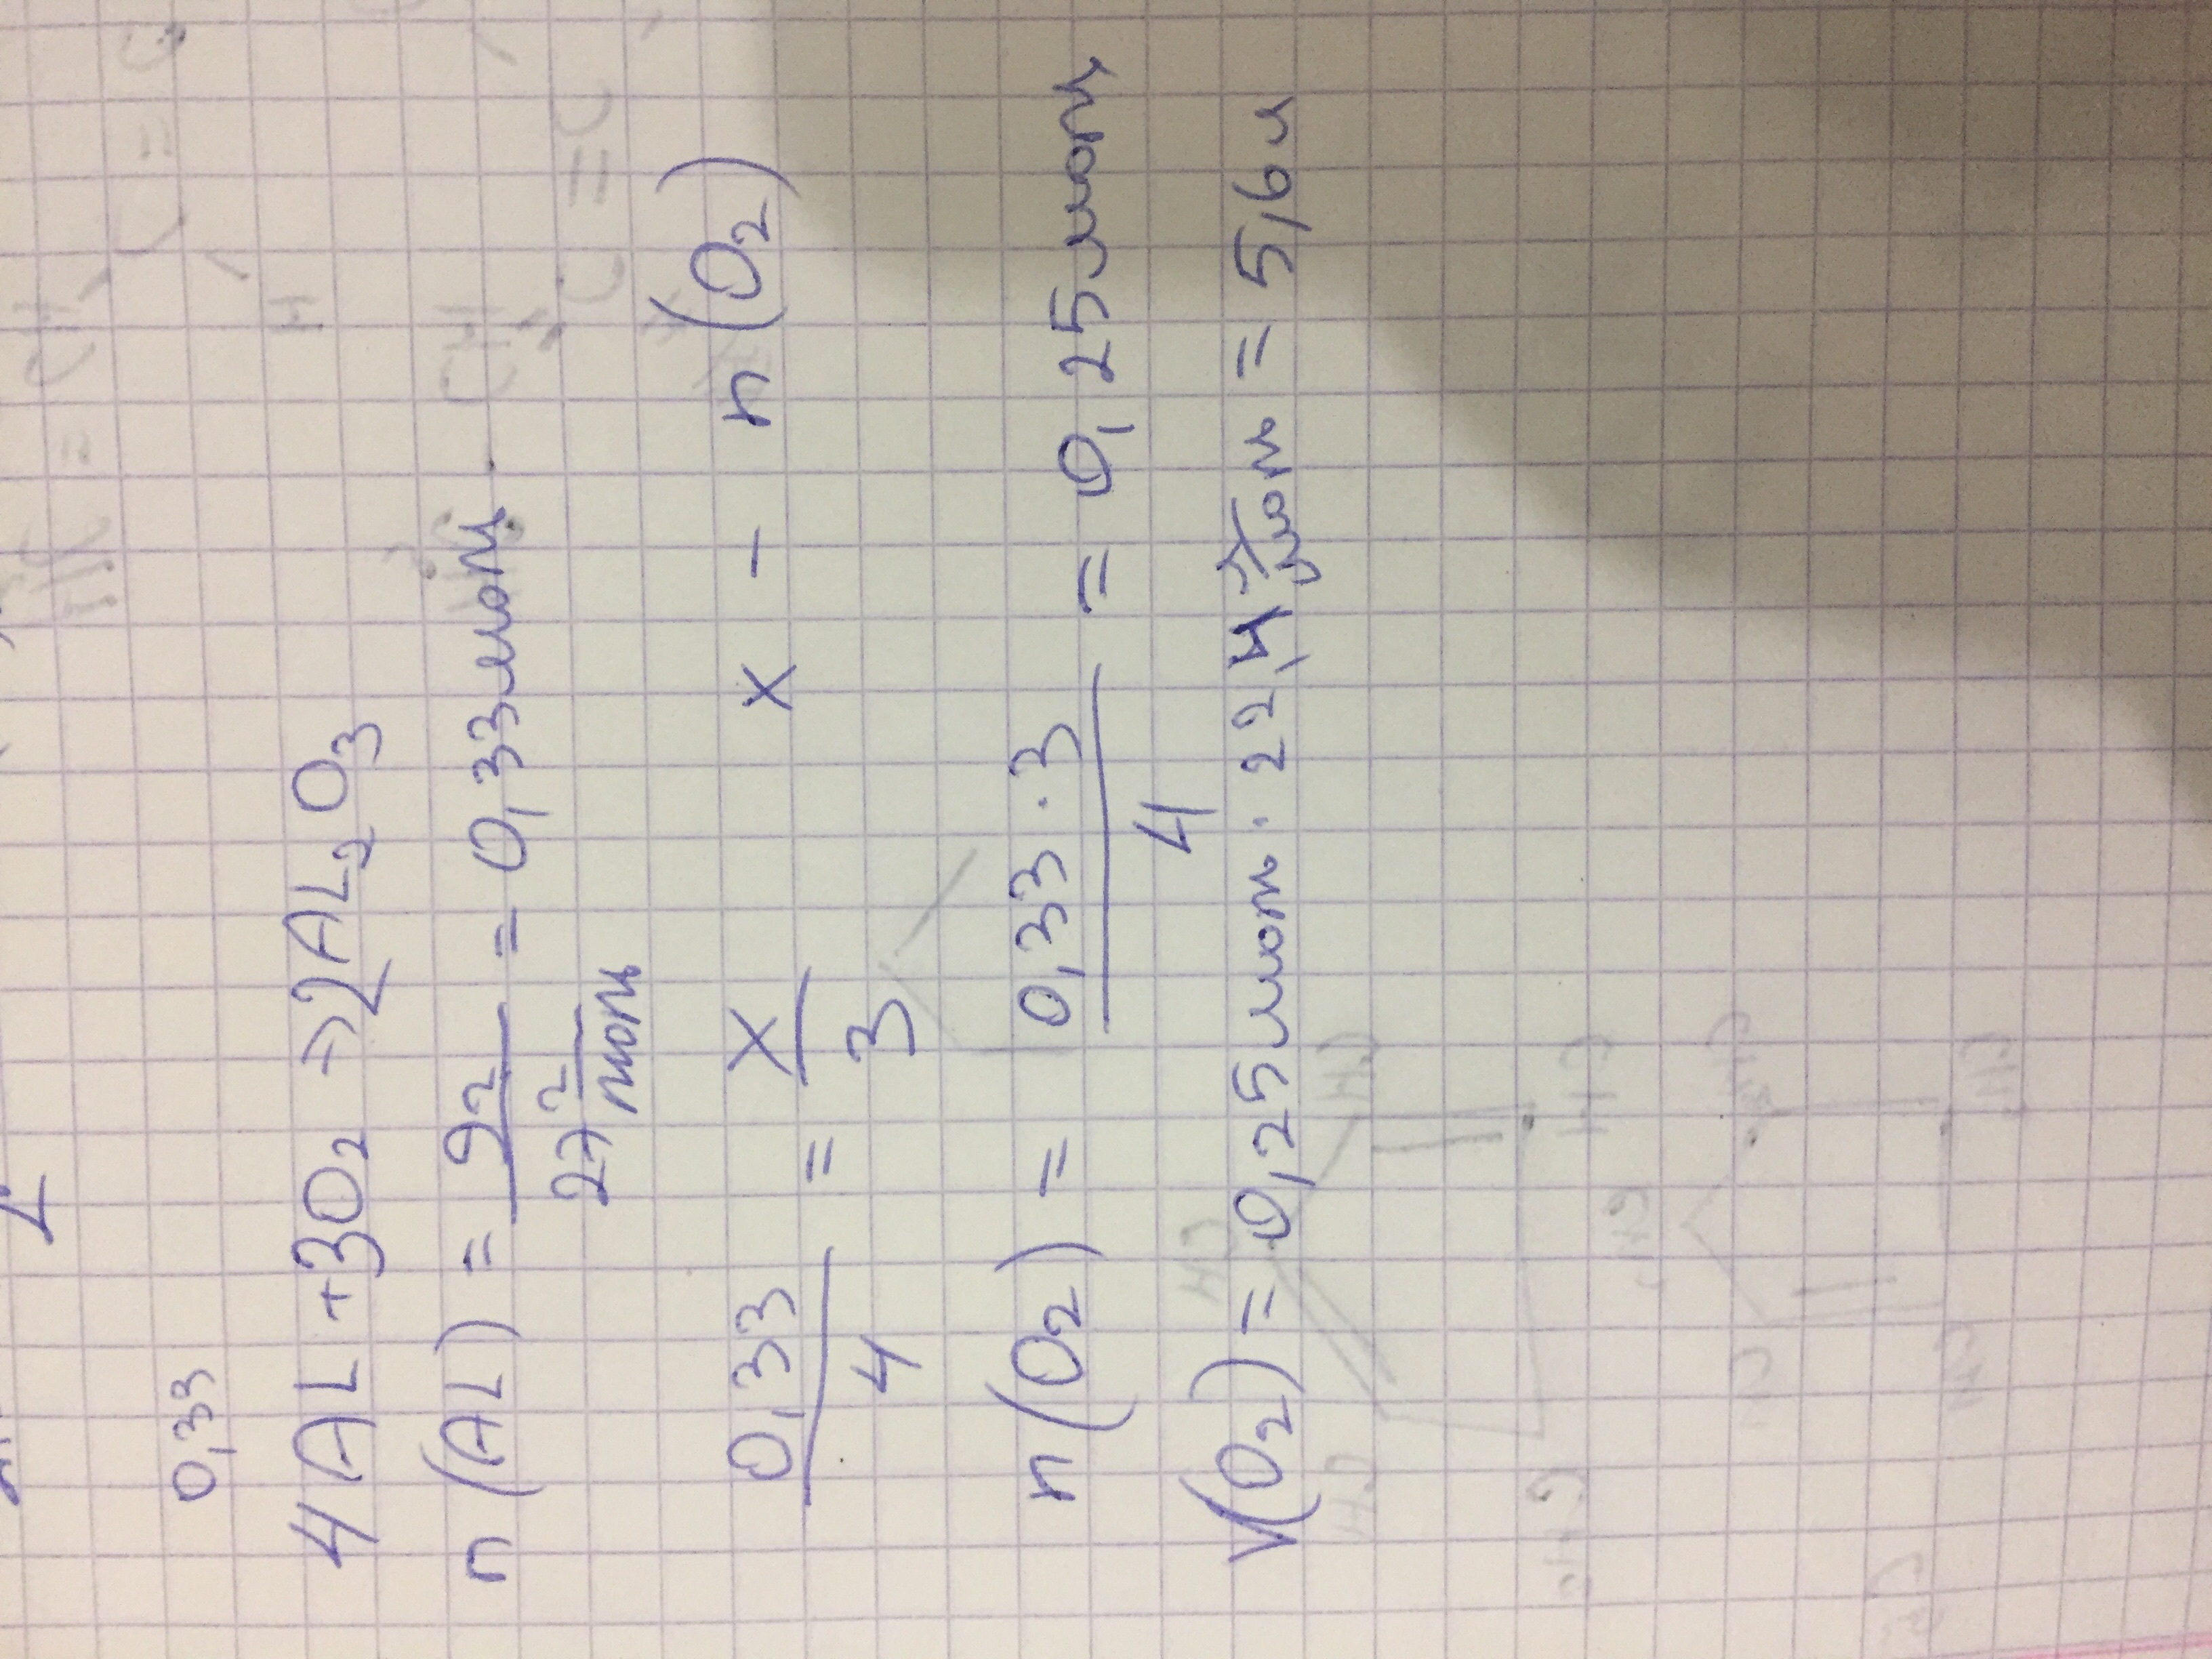 0,33
4AL + 3O₂ → 2AL₂O₃
n(AL) = 9г / 27 г/моль = 0,33моль
0,33/4 = x/3 x - n(O₂)
n(O₂) = 0,33·3 / 4 = 0,25моль
V(O₂) = 0,25моль · 22,4 л/моль = 5,6л